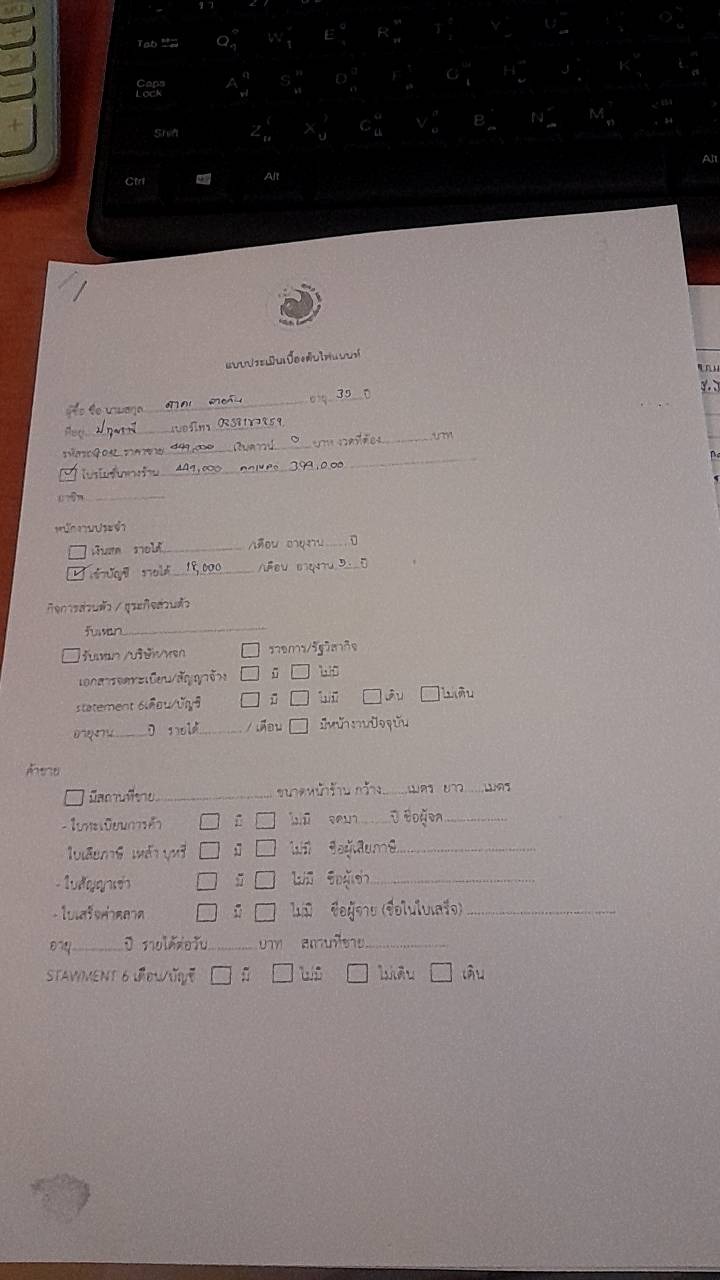 Tab Q W E R T Y U
Caps Lock A S D F G H J K L
Shift Z X C V B N M
Ctrl Alt Alt
แบบประเมินเบื้องต้นไฟแนนท์
ผู้ซื้อ ชื่อ นามสกุล อายุ 35 ปี
ที่อยู่ เบอร์โทร
รหัสรถ ราคาขาย 449,000 เงินดาวน์ 0 บาท งวดที่ต้อง บาท
โปรโมชั่นทางร้าน 449,000 399,000
อาชีพ
พนักงานประจำ
เงินสด รายได้ /เดือน อายุงาน ปี
เข้าบัญชี รายได้ 18,000 /เดือน อายุงาน ปี
กิจการส่วนตัว / ธุรกิจส่วนตัว
รับเหมา
รับเหมา /บริษัท/หจก ราชการ/รัฐวิสากิจ
เอกสารจดทะเบียน/สัญญาจ้าง มี ไม่มี
statement 6เดือน/บัญชี มี ไม่มี เดิน ไม่เดิน
อายุงาน ปี รายได้ / เดือน มีหน้างานปัจจุบัน
ค้าขาย
มีสถานที่ขาย ขนาดหน้าร้าน กว้าง เมตร ยาว เมตร
- ใบทะเบียนการค้า มี ไม่มี จดมา ปี ชื่อผู้จด
ใบเสียภาษี เหล้า บุหรี่ มี ไม่มี ชื่อผู้เสียภาษี
- ใบสัญญาเช่า มี ไม่มี ชื่อผู้เช่า
- ใบเสร็จค่าตลาด มี ไม่มี ชื่อผู้จ่าย (ชื่อในใบเสร็จ)
อายุ ปี รายได้ต่อวัน บาท สถานที่ขาย
STAWMENT 6 เดือน/บัญชี มี ไม่มี ไม่เดิน เดิน